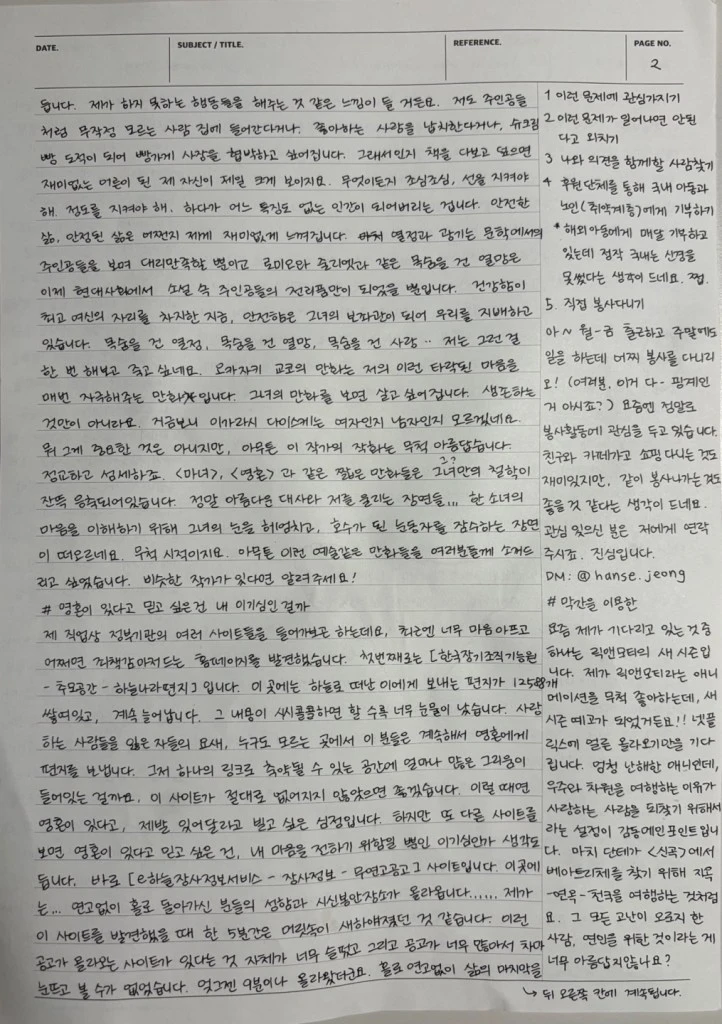 DATE.
SUBJECT / TITLE.
REFERENCE.
PAGE NO.
2
듭니다. 제가 하지 못하는 행동들을 해주는 것 같은 느낌이 들 거든요. 저도 주인공들
처럼 무작정 모르는 사람 집에 들어간다거나, 좋아하는 사람을 납치한다거나, 슈크림
빵 도적이 되어 빵가게 사장을 협박하고 싶어집니다. 그래서인지 책을 다보고 덮으면
재미없는 어른이 된 제 자신이 제일 크게 보이지요. 무엇이든지 조심조심, 선을 지켜야
해. 정도를 지켜야 해. 하다가 어느 특징도 없는 인간이 되어버리는 겁니다. 안전한
삶, 안정된 삶은 어쩐지 제게 재미없게 느껴집니다. 열정과 광기는 문학에서의
주인공들을 보며 대리만족할 뿐이고 로미오와 줄리엣과 같은 목숨을 건 열망은
이제 현대사회에서 소설 속 주인공들의 전리품만이 되었을 뿐입니다. 건강함이
최고 여신의 자리를 차지한 지금, 안전함은 그녀의 보좌관이 되어 우리를 지배하고
있습니다. 목숨을 건 열정, 목숨을 건 열망, 목숨을 건 사랑.. 저는 그런 걸
한 번 해보고 죽고 싶네요. 오카자키 교코의 만화는 저의 이런 타락된 마음을
매번 자극해주는 만화입니다. 그녀의 만화를 보면 살고 싶어집니다. 생존하는
것만이 아니라요. 지금보니 이가라시 다이스케는 여자인지 남자인지 모르겠네요.
뭐 그게 중요한 것은 아니지만, 아무튼 이 작가의 작화는 무척 아름답습니다.
정교하고 섬세하죠. <마녀>, <영혼> 과 같은 짧은 만화들은 그녀만의 철학이
그??
잔뜩 응축되어있습니다. 정말 아름다운 대사와 저를 울리는 장면들... 한 소녀의
마음을 이해하기 위해 그녀의 눈을 헤엄치고, 호수가 된 눈동자를 잠수하는 장면
이 떠오르네요. 무척 시적이지요. 아무튼 이런 예술같은 만화들을 여러분들께 소개드
리고 싶었습니다. 비슷한 작가가 있다면 알려주세요!
# 영혼이 있다고 믿고 싶은건 내 이기심인 걸까
제 직업상 정부기관의 여러 사이트들을 들어가보곤 하는데요, 최근엔 너무 마음아프고
어쩌면 죄책감마저드는 홈페이지를 발견했습니다. 첫번째로는 [한국장기조직기증원
- 추모공간 - 하늘나라편지] 입니다. 이 곳에는 하늘로 떠난 이에게 보내는 편지가 12588개
쌓여있고, 계속 늘어납니다. 그 내용이 시시콜콜하면 할 수록 너무 눈물이 났습니다. 사랑
하는 사람들을 잃은 자들의 요새, 누구도 모르는 곳에서 이 분들은 계속해서 영혼에게
편지를 보냅니다. 그저 하나의 링크로 축약될 수 있는 공간에 얼마나 많은 그리움이
들어있는 걸까요. 이 사이트가 절대로 없어지지 않았으면 좋겠습니다. 이럴 때면
영혼이 있다고, 제발 있어달라고 빌고 싶은 심정입니다. 하지만 또 다른 사이트를
보면 영혼이 있다고 믿고 싶은 건, 내 마음을 전하기 위함일 뿐인 이기심인가 생각도
듭니다. 바로 [e하늘장사정보서비스 - 장사정보 - 무연고공고] 사이트입니다. 이곳에
는... 연고없이 홀로 돌아가신 분들의 성함과 시신불안장소가 올라옵니다...... 제가
이 사이트를 발견했을 때 한 5분간은 머릿속이 새하얘졌던 것 같습니다. 이런
공고가 올라오는 사이트가 있다는 것 자체가 너무 슬펐고 그리고 공고가 너무 많아서 차마
눈뜨고 볼 수가 없었습니다. 엊그젠 9분이나 올라왔더군요. 홀로 연고없이 삶의 마지막을
1 이런 문제에 관심가지기
2 이런 문제가 일어나면 안된
다고 외치기
3 나와 의견을 함께할 사람찾기
4 후원단체를 통해 국내 아동과
노인(취약계층)에게 기부하기
* 해외아동에게 매달 기부하고
있는데 정작 국내는 신경을
못썼다는 생각이 드네요. 쩝.
5. 직접 봉사다니기
아~ 월-금 출근하고 주말에도
일을 하는데 어찌 봉사를 다니리
오! (여러분, 이거 다- 핑계인
거 아시죠?) 요즘엔 정말로
봉사활동에 관심을 두고 있습니다.
친구와 카페가고 쇼핑 다니는 것도
재미있지만, 같이 봉사나가는것도
좋을 것 같다는 생각이 드네요.
관심 있으신 분은 저에게 연락
주시죠. 진심입니다.
DM: @hanse.jeong
# 막간을 이용한
요즘 제가 기다리고 있는 것 중
하나는 릭앤모티의 새 시즌입
니다. 제가 릭앤모티라는 애니
메이션을 무척 좋아하는데, 새
시즌 예고가 되었거든요!! 넷플
릭스에 얼른 올라오기만을 기다
립니다. 엄청 난해한 애니인데,
우주와 차원을 여행하는 이유가
사랑하는 사람을 되찾기 위해서
라는 설정이 감동에인포인트입니
다. 마치 단테가 <신곡>에서
베아트리체를 찾기 위해 지옥
-연옥-천국을 여행하는 것처럼
요. 그 모든 고난이 오로지 한
사람, 연인을 위한 것이라는 게
너무 아름답지않나요?
↳ 뒤 오른쪽 칸에 계속됩니다.